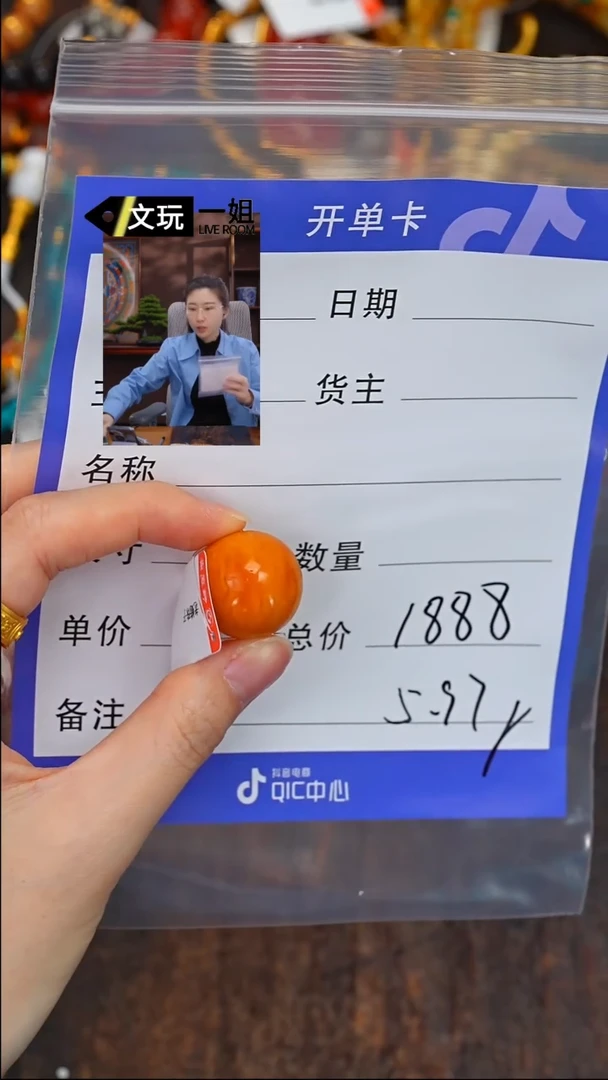 文玩 一姐
LIVE ROOM
开单卡
日期
货主
名称
数量
单价
总价 1888
备注 5.97y
抖音电商
QIC中心